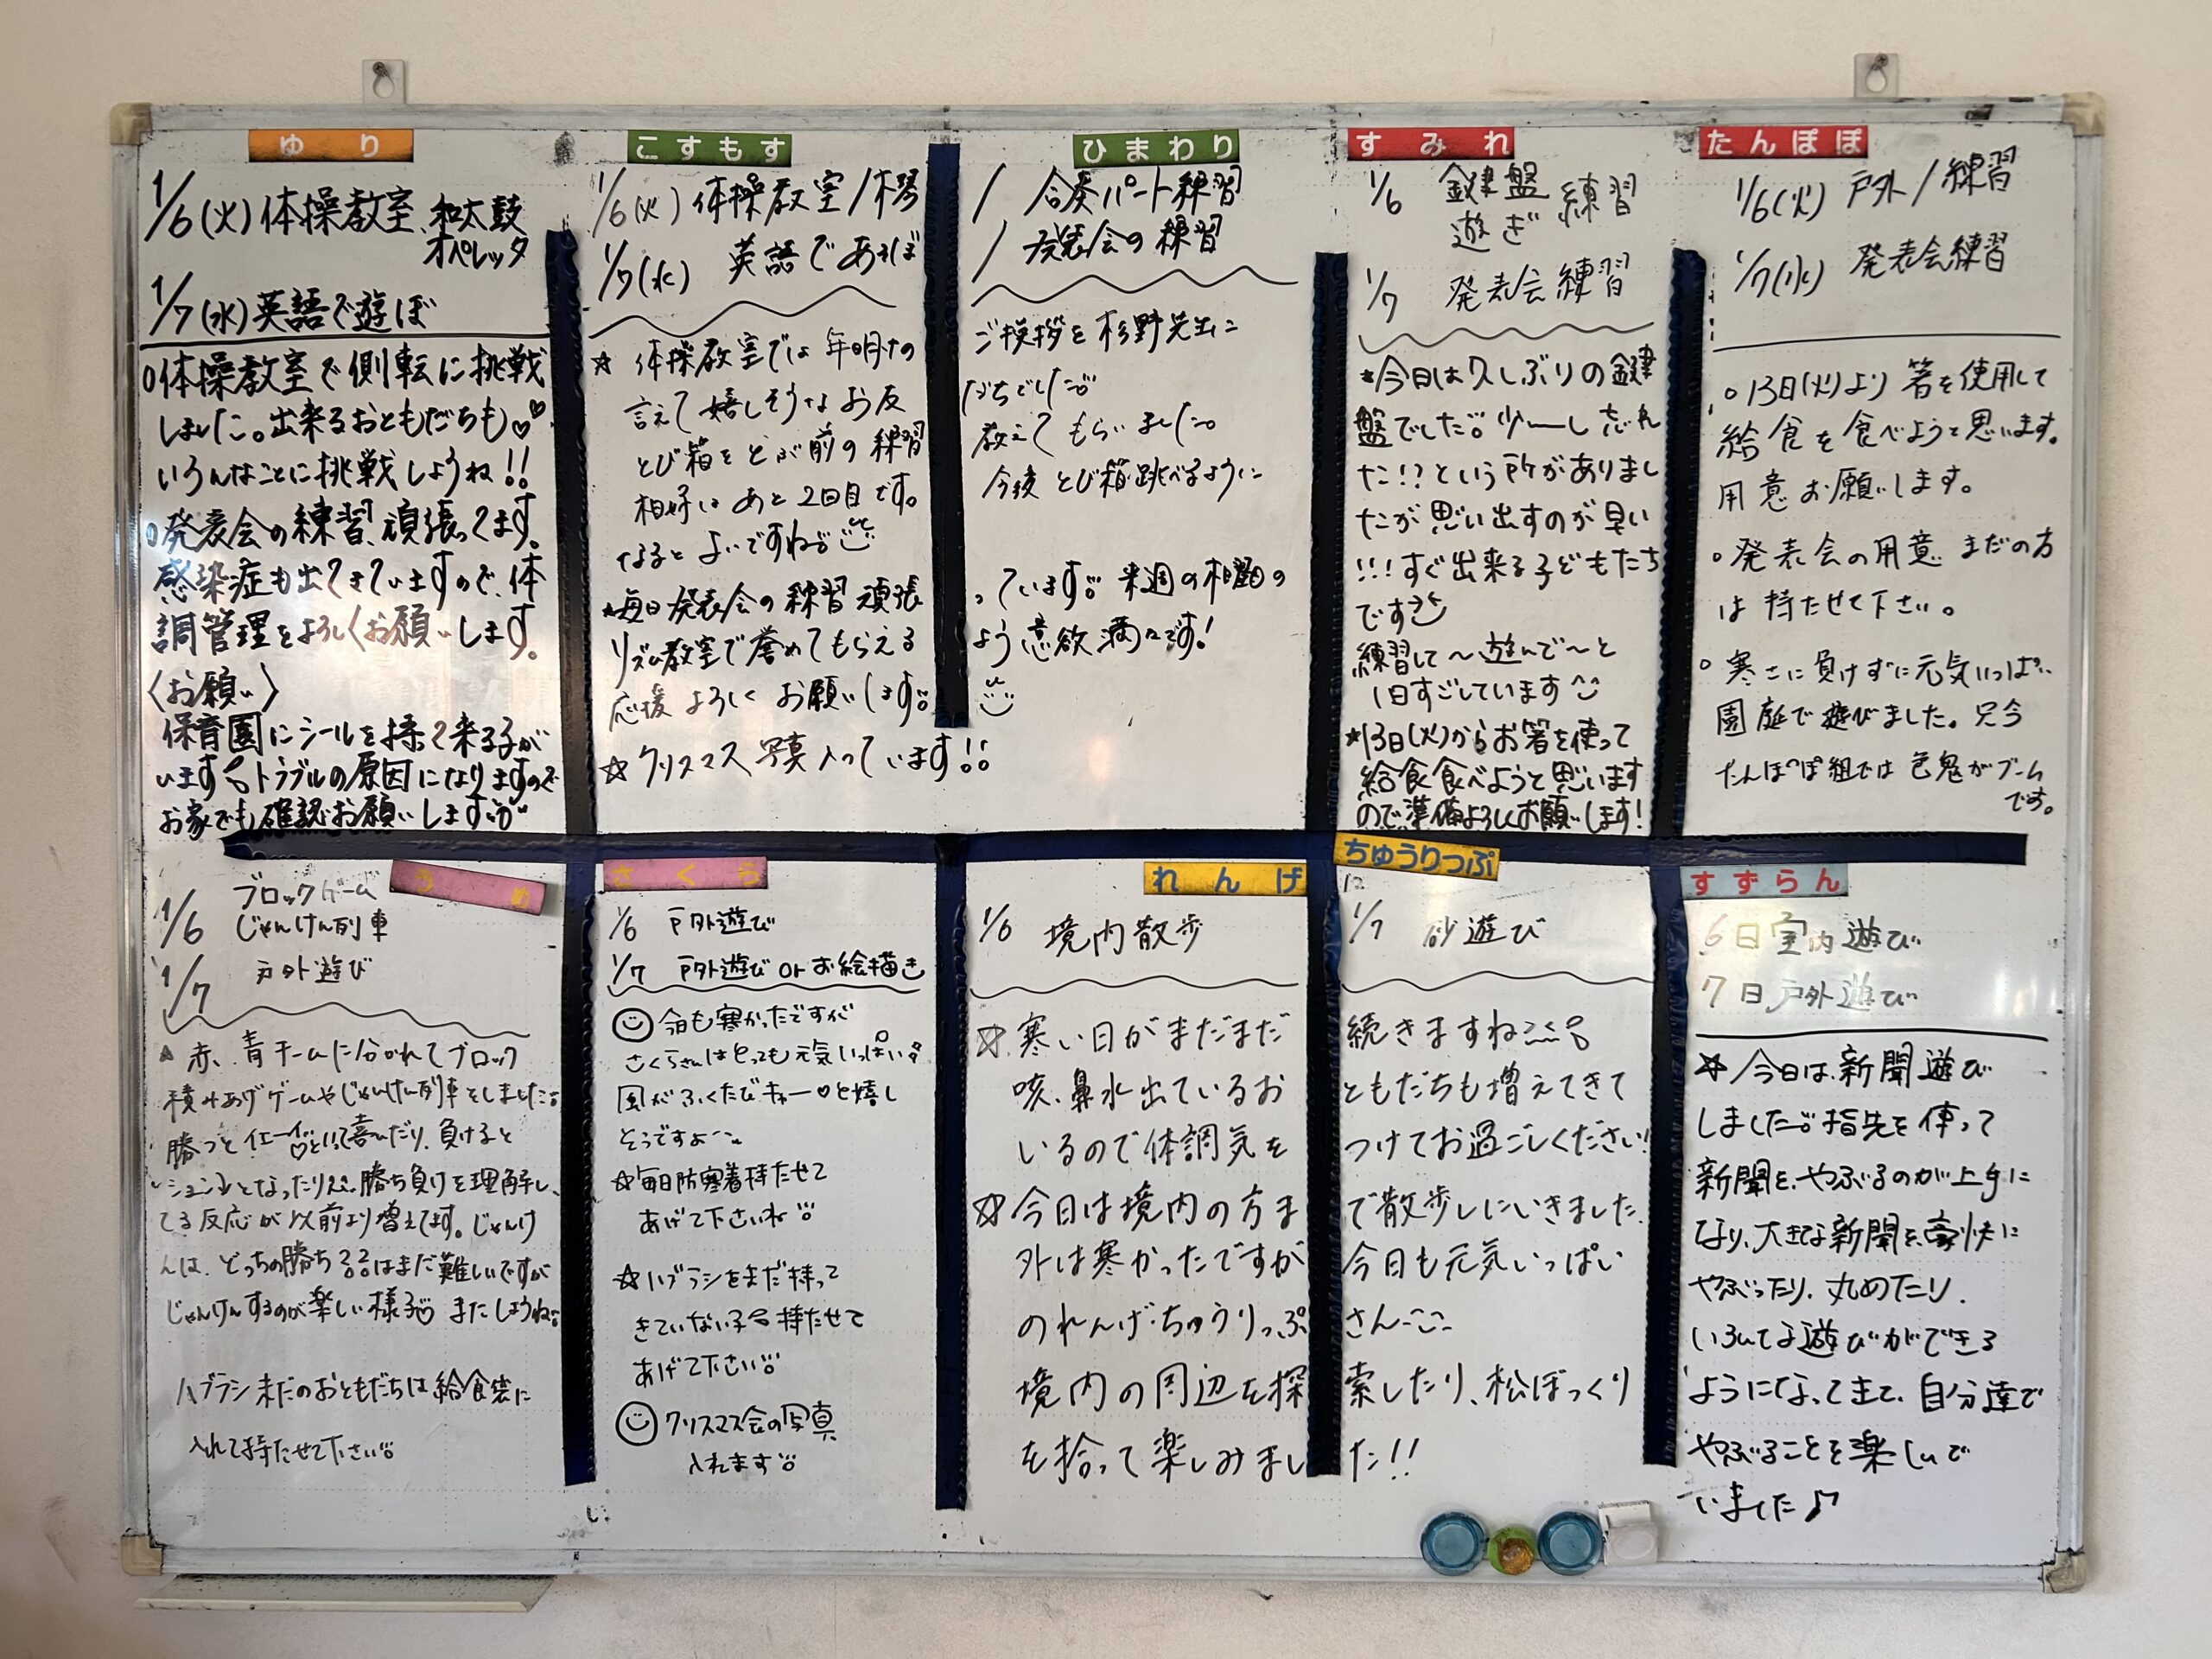 ゆり
1/6(火)体操教室、和太鼓
オペレッタ
1/7(水)英語で遊ぼ
○体操教室で側転に挑戦
しました。出来るおともだちも♡
いろんなことに挑戦しようね!!
○発表会の練習、頑張ってます。
感染症も出てきていますので、体
調管理をよろしくお願いします。
〈お願い〉
保育園にシールを持って来る子が
います トラブルの原因になりますので
お家でも確認お願いします
こすもす
ひまわり
1/6(火)体操教室/木琴
/ 合奏パート練習
1/7(水) 英語であそぼ
/ 発表会の練習
☆ 体操教室では年明けの
ご挨拶を杉野先生に
言えて嬉しそうなお友
だちでした。
とび箱をとぶ前の練習
教えてもらいました。
相好は あと2回目です。
今後 とび箱跳べるように
なるとよいですね
★毎日発表会の練習頑張
っています。来週の木曜日の
リズム教室で誉めてもらえる
よう意欲満々です!
応援よろしくお願いします。
☆クリスマス写真入っています!!
すみれ
1/6 鍵盤 練習
遊ぎ
1/7 発表会練習
★今日は久しぶりの鍵
盤でした。少〜し忘れ
た!?という所がありまし
たが思い出すのが早い
!!!すぐ出来る子どもたち
です
練習して〜遊んで〜と
1日すごしています
★13日(火)からお箸を使って
給食食べようと思います
ので準備よろしくお願いします!
たんぽぽ
1/6(火) 戸外/練習
1/7(水) 発表会練習
○13日(火)より箸を使用して
給食を食べようと思います。
用意お願いします。
○発表会の用意 まだの方
は持たせて下さい。
○寒さに負けずに元気いっぱい
園庭で遊びました。只今
たんぽぽ組では色鬼がブーム
です。
うめ
1/6 ブロックゲーム
じゃんけん列車
1/7 戸外遊び
赤、青チームに分かれてブロック
積みあげゲームやじゃんけん列車をしました。
勝つとイエーイ♡といって喜んだり、負けると
ションとなったり 勝ち負けを理解し
てる反応が以前より増えてます。じゃんけ
んは、どっちの勝ち??はまだ難しいですが
じゃんけんするのが楽しい様子 またしようね
ハブラシまだのおともだちは給食袋に
入れて持たせて下さい
さくら
1/6 戸外遊び
1/7 戸外遊びorお絵描き
今日も寒かったですが
さくらさんはとっても元気いっぱい
風がふくたびキャー♡と嬉し
そうですよ〜
☆毎日防寒着持たせて
あげて下さいね
☆ハブラシをまだ持って
きていない子 持たせて
あげて下さい
クリスマス会の写真
入れます
れんげ
ちゅうりっぷ
1/6 境内散歩
1/7 砂遊び
☆寒い日がまだまだ
続きますね
咳、鼻水出ているお
ともだちも増えてきて
いるので体調気を
つけてお過ごしください!
☆今日は境内の方ま
で散歩しにいきました。
外は寒かったですが
今日も元気いっぱい
のれんげ・ちゅうりっぷ
さん
境内の周辺を探
索したり、松ぼっくり
を拾って楽しみまし
た!!
すずらん
6日 室内遊び
7日 戸外遊び
☆今日は、新聞遊び
しました。指先を使って
新聞を、やぶるのが上手に
なり、大きな新聞を、豪快に
やぶったり、丸めたり、
いろんな遊びができる
ようになってきて、自分達で
やぶることを楽しんで
いました♪